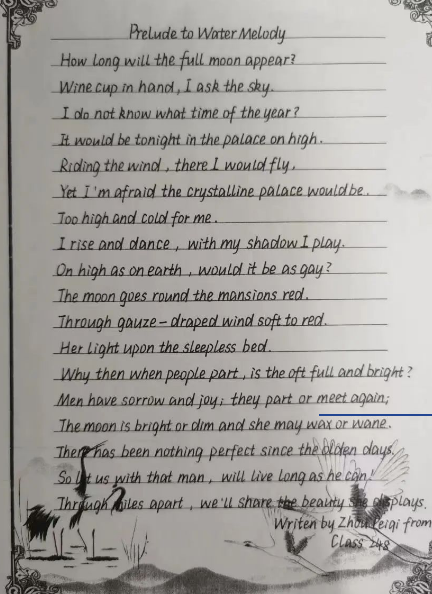 Prelude to Water Melody
How long will the full moon appear?
Wine cup in hand, I ask the sky.
I do not know what time of the year?
It would be tonight in the palace on high.
Riding the wind, there I would fly,
Yet I'm afraid the crystalline palace would be.
Too high and cold for me.
I rise and dance, with my shadow I play.
On high as on earth, would it be as gay?
The moon goes round the mansions red.
Through gauze-draped wind soft to red.
Her light upon the sleepless bed.
Why then when people part, is the oft full and bright?
Men have sorrow and joy; they part or meet again;
The moon is bright or dim and she may wax or wane.
There has been nothing perfect since the olden days.
So let us with that man, will live long as he can!
Through miles apart, we'll share the beauty she displays.
Writen by Zhou Peiqi from
Class 248